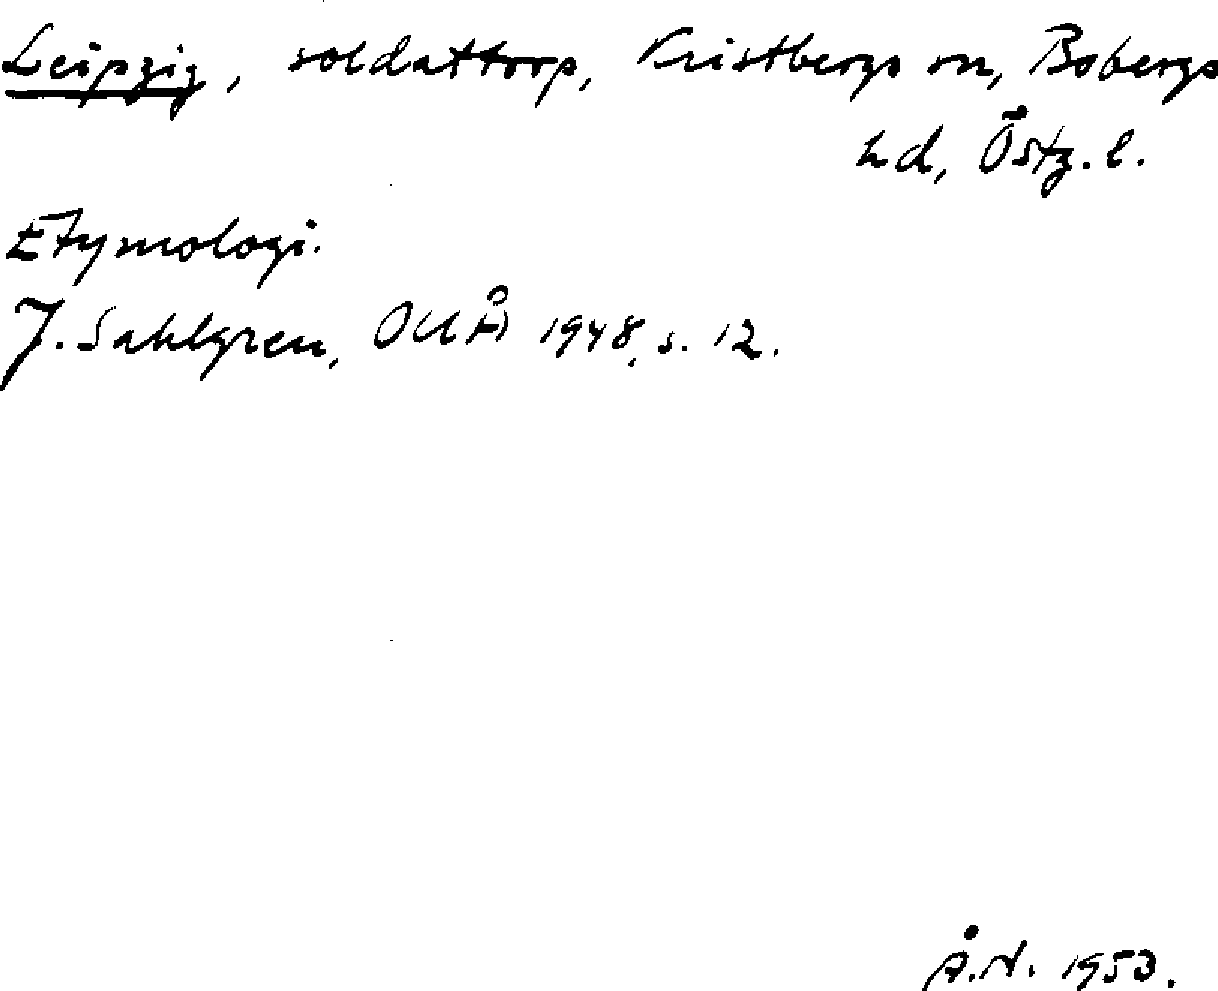 Leipzig, soldattorp, Kristbergs sn, Bobergs
hd, Östg. l.
Etymologi.
J. Sahlgren, OUÅ 1948, s. 12.
Å.N. 1953.